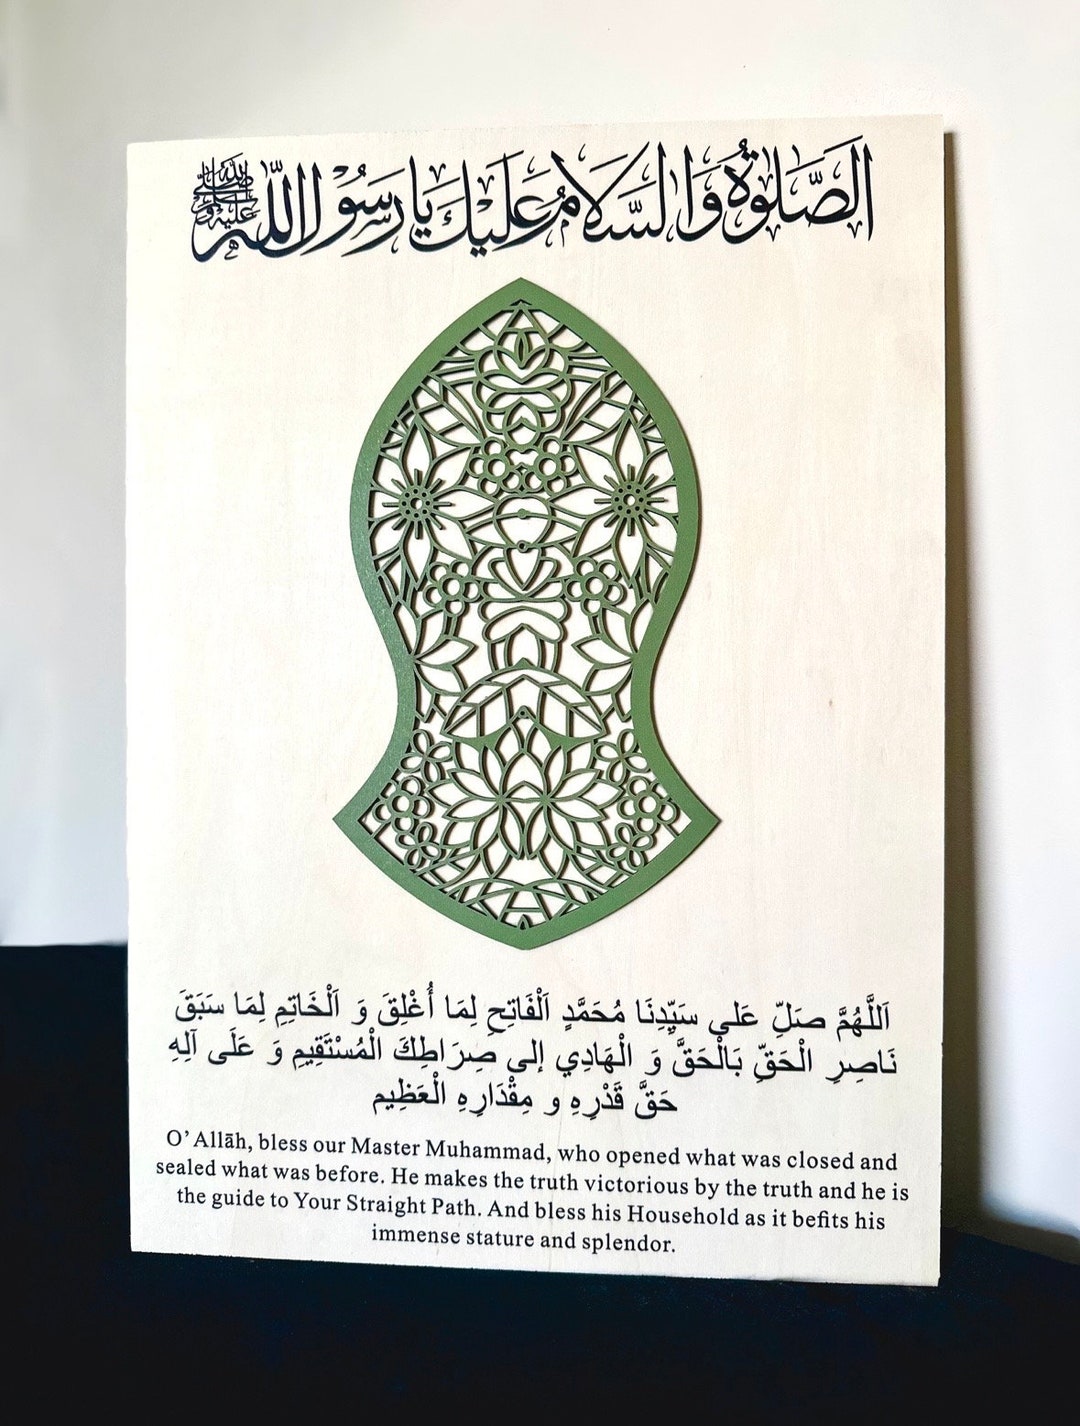 الصَّلَوٰةُ وَالسَّلَامُ عَلَيْكَ يَا رَسُولَ اللّٰهِ ﷺ
اَللَّهُمَّ صَلِّ عَلى سَيِّدِنَا مُحَمَّدٍ اَلْفَاتِحِ لِمَا أُغْلِقَ وَ اَلْخَاتِمِ لِمَا سَبَقَ
نَاصِرِ الْحَقِّ بَالْحَقَّ وَ الْهَادِي إلى صِرَاطِكَ الْمُسْتَقِيمِ وَ عَلَى آلِهِ
حَقَّ قَدْرِهِ و مِقْدَارِهِ الْعَظِيم
O’ Allāh, bless our Master Muhammad, who opened what was closed and
sealed what was before. He makes the truth victorious by the truth and he is
the guide to Your Straight Path. And bless his Household as it befits his
immense stature and splendor.